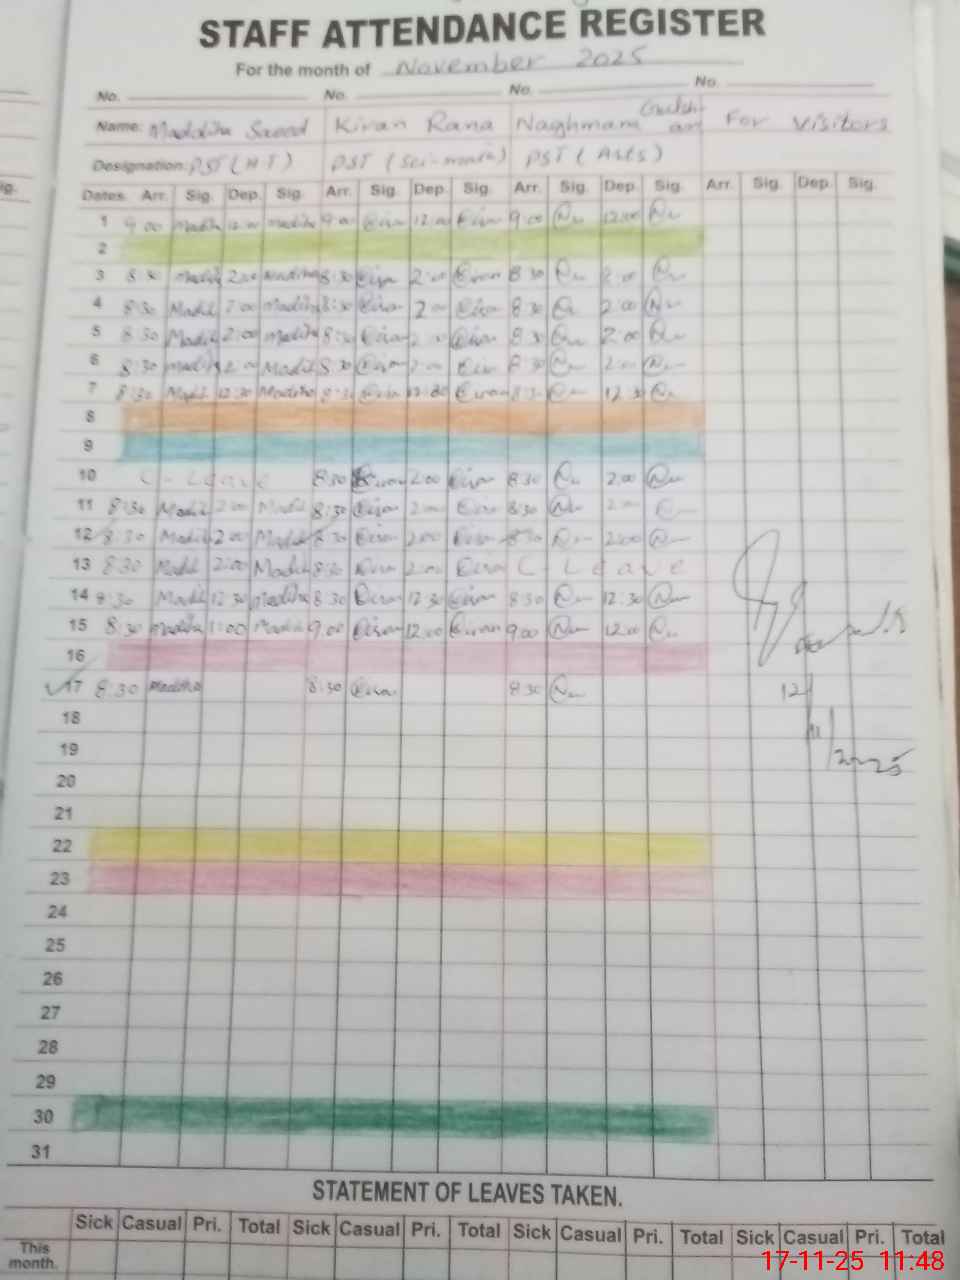 STAFF ATTENDANCE REGISTER
For the month of November 2025
No. No. No. No.
Name: Madiha Saeed Kiran Rana Naghmana For visitors
Designation: PST (HT) PST (Sci-math) PST (Arts)
Dates Arr. Sig. Dep. Sig. Arr. Sig. Dep. Sig. Arr. Sig. Dep. Sig. Arr. Sig. Dep. Sig.
1 9 00 Madiha 12:00 Madiha 9:00 12:00 9:00 12:00
2
3 8:30 Madiha 2:00 Madiha 8:30 2:00 8:30 2:00
4 8:30 Madiha 2:00 Madiha 8:30 2:00 8:30 2:00
5 8:30 Madiha 2:00 Madiha 8:30 2:00 8:30 2:00
6 8:30 Madiha 2:00 Madiha 8:30 2:00 8:30 2:00
7 8:30 Madiha 12:30 Madiha 8:30 12:30 8:30 12:30
8
9
10 C-Leave 8:30 2:00 8:30 2:00
11 8:30 Madiha 2:00 Madiha 8:30 2:00 8:30 2:00
12 8:30 Madiha 2:00 Madiha 8:30 2:00 8:30 2:00
13 8:30 Madiha 2:00 Madiha 8:30 2:00 C-Leave
14 8:30 Madiha 12:30 Madiha 8:30 12:30 8:30 12:30
15 8:30 Madiha 1:00 Madiha 9:00 12:00 9:00 12:00
16
17 8:30 Madiha 8:30 8:30
12/11/2025
18
19
20
21
22
23
24
25
26
27
28
29
30
31
STATEMENT OF LEAVES TAKEN.
Sick Casual Pri. Total Sick Casual Pri. Total Sick Casual Pri. Total Sick Casual Pri. Total
This month.
17-11-25 11:48